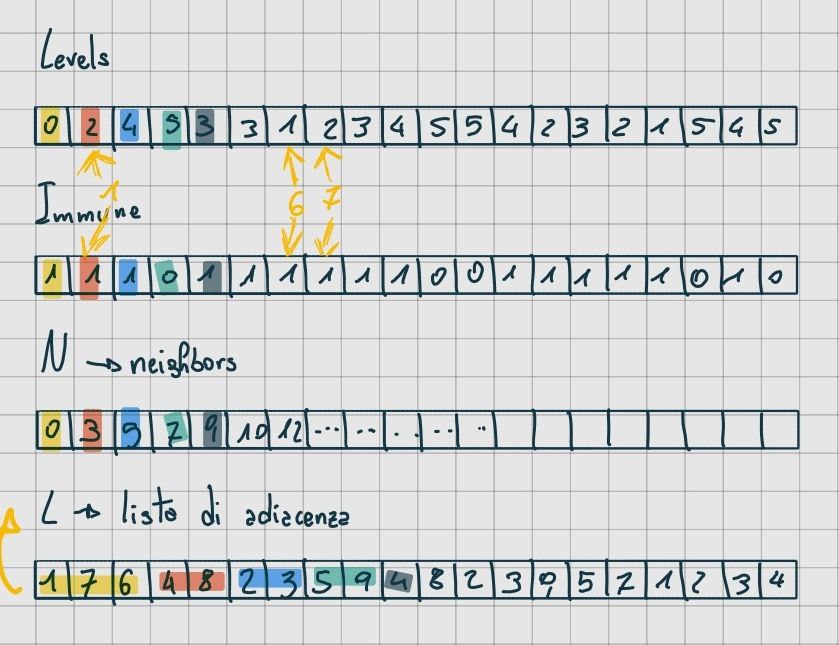 Levels
0 2 4 5 3 3 1 2 3 4 5 5 4 2 3 2 1 5 4 5
1 6 7
Immune
1 1 1 0 1 1 1 1 1 1 0 0 1 1 1 1 1 0 1 0
N → neighbors
0 3 5 7 9 10 12 ... .. .. ... ..
L → lista di adiacenza
1 7 6 4 8 2 3 5 9 4 8 2 3 0 5 7 1 2 3 4